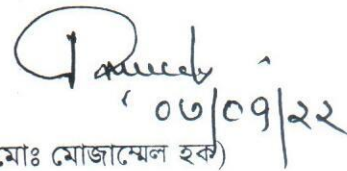 ০৩/০৭/২২
মোঃ মোজাম্মেল হক)